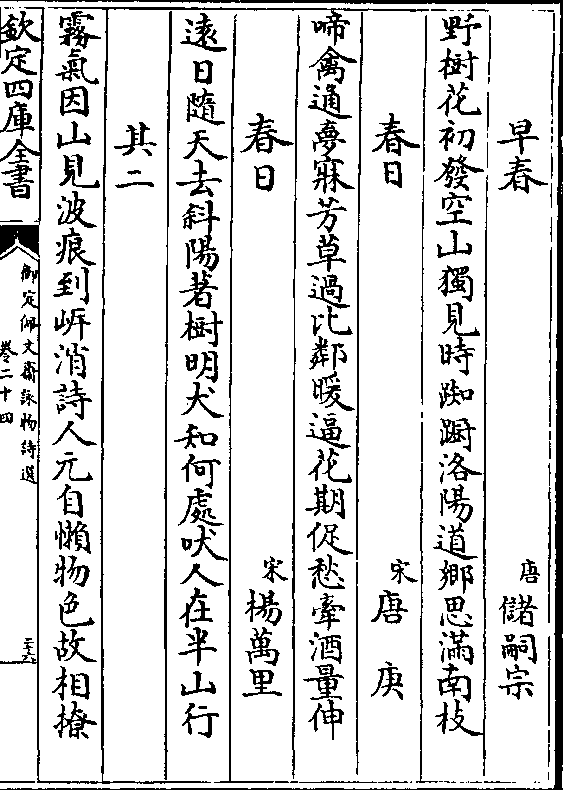 早春　唐儲嗣宗
野樹花初發空山獨見時踟躕洛陽道鄉思滿南枝
春日　宋唐庚
啼禽通夢寐芳草過比鄰暖逼花期促愁牽酒量伸
春日　宋楊萬里
遠日隨天去斜陽著樹明犬知何處吠人在半山行
其二
霧氣因山見波痕到㟁消詩人元自懶物色故相撩
欽定四庫全書
御定佩文齋詠物詩選
卷二十四
二六